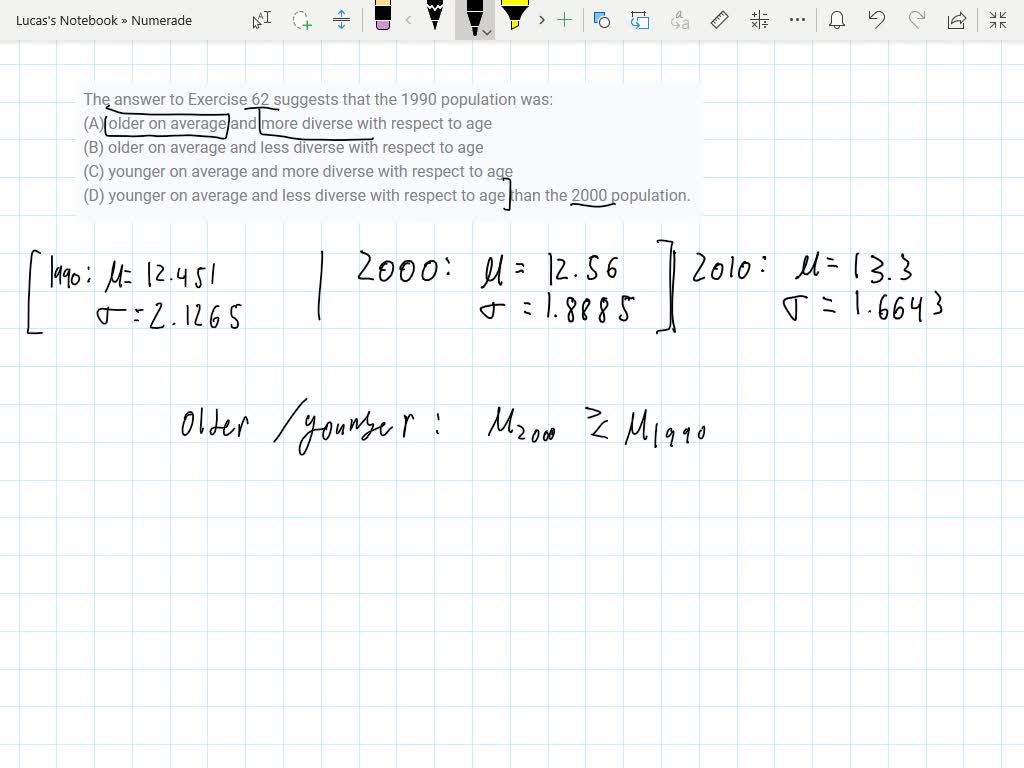 Lucas's Notebook » Numerade
The answer to Exercise 62 suggests that the 1990 population was:
(A) older on average and more diverse with respect to age
(B) older on average and less diverse with respect to age
(C) younger on average and more diverse with respect to age
(D) younger on average and less diverse with respect to age than the 2000 population.
1990: μ= 12.451 | 2000: μ = 12.56 | 2010: μ= 13.3
σ=2.1265 σ = 1.8885 σ = 1.6643
older /younger: μ2000 ≷ μ1990